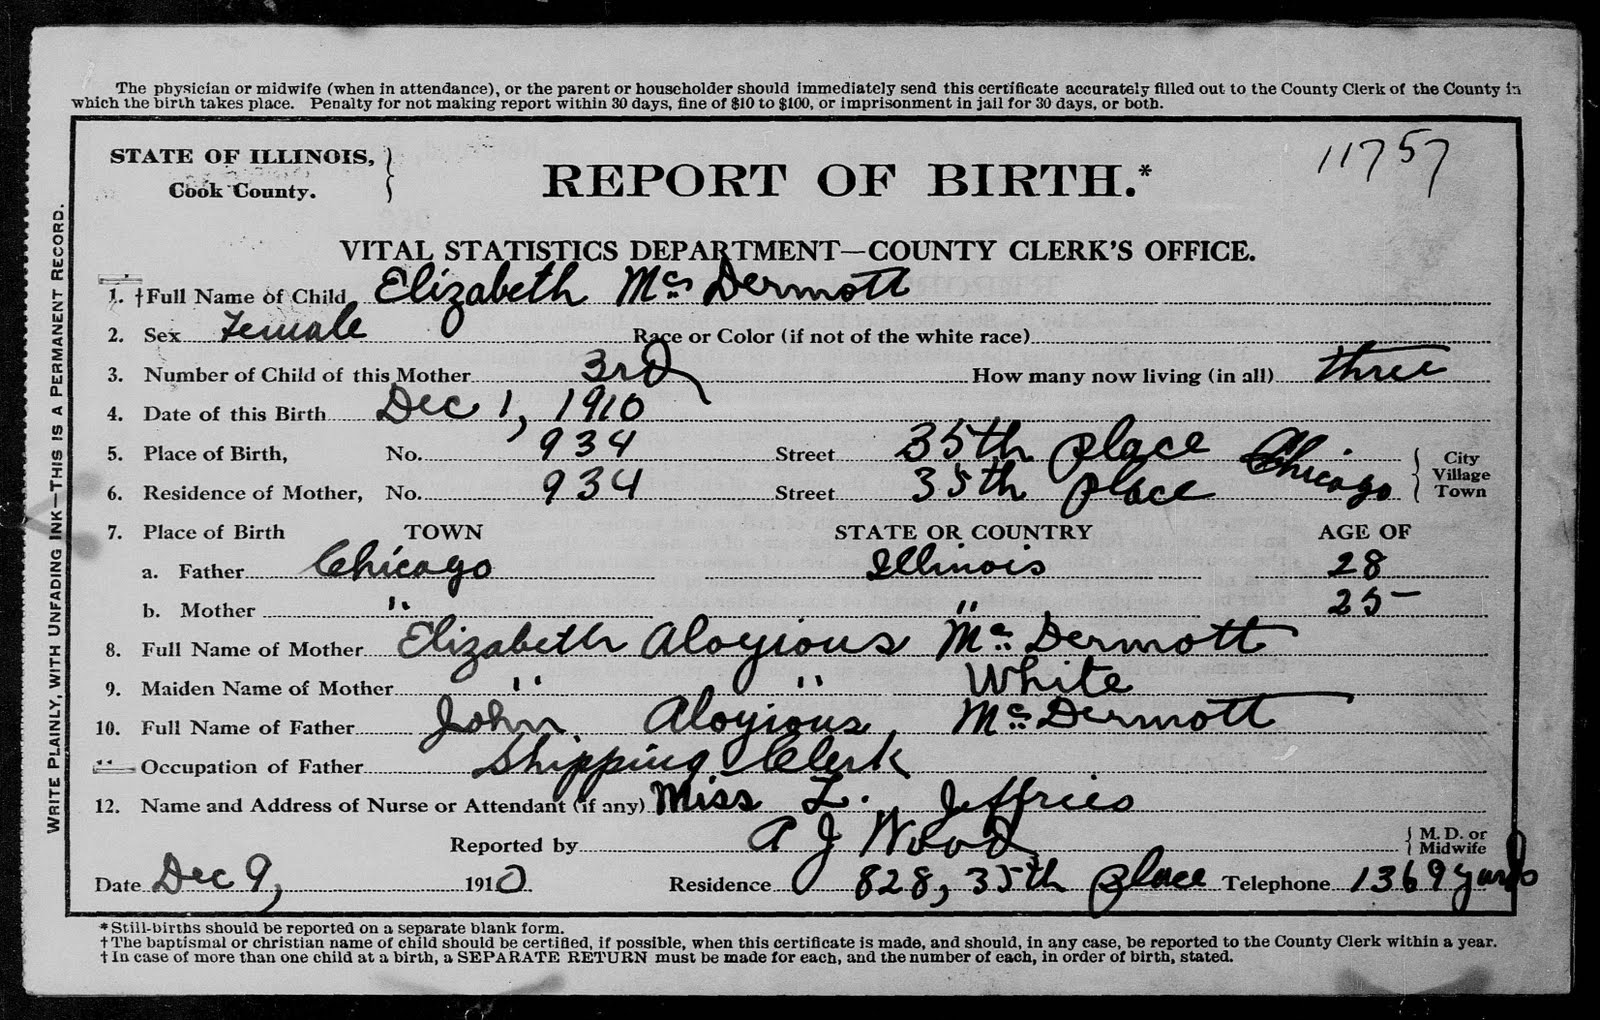 The physician or midwife (when in attendance), or the parent or householder should immediately send this certificate accurately filled out to the County Clerk of the County in
which the birth takes place. Penalty for not making report within 30 days, fine of $10 to $100, or imprisonment in jail for 30 days, or both.
STATE OF ILLINOIS,
Cook County.
REPORT OF BIRTH.*
11757
VITAL STATISTICS DEPARTMENT—COUNTY CLERK'S OFFICE.
1. †Full Name of Child Elizabeth McDermott
2. Sex Female Race or Color (if not of the white race)
3. Number of Child of this Mother 3rd How many now living (in all) three
4. Date of this Birth Dec 1, 1910
5. Place of Birth, No. 934 Street 35th place Chicago City
Village
6. Residence of Mother, No. 934 Street 35th place Town
7. Place of Birth TOWN STATE OR COUNTRY AGE OF
a. Father Chicago Illinois 28
b. Mother " " 25
8. Full Name of Mother Elizabeth Aloyious McDermott
9. Maiden Name of Mother " " White
10. Full Name of Father John Aloyious McDermott
Occupation of Father Shipping Clerk
12. Name and Address of Nurse or Attendant (if any) Miss L. Jeffries
Reported by A J Wood M. D. or
Midwife
Date Dec 9, 1910 Residence 828, 35th place Telephone 1369 yards
*Still-births should be reported on a separate blank form.
†The baptismal or christian name of child should be certified, if possible, when this certificate is made, and should, in any case, be reported to the County Clerk within a year.
†In case of more than one child at a birth, a SEPARATE RETURN must be made for each, and the number of each, in order of birth, stated.
WRITE PLAINLY, WITH UNFADING INK—THIS IS A PERMANENT RECORD.